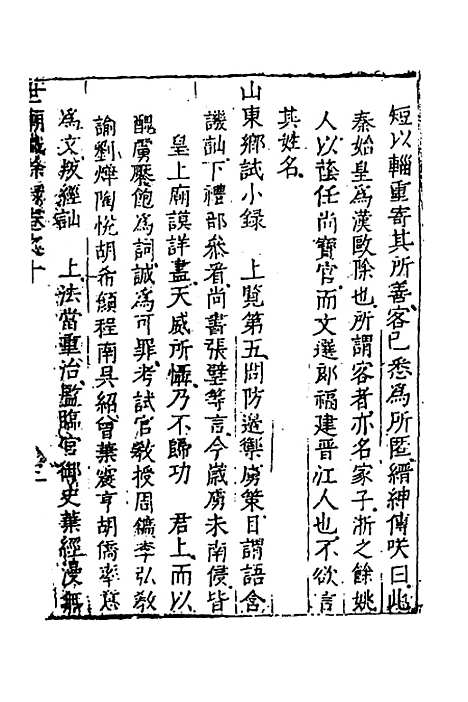 短以輜重寄其所善客已悉為所匿縉紳傳咲曰此
秦始皇為漢敺除也所謂客者亦名家子浙之餘姚
人以蔭任尚寶官而文選郎福建晋江人也不欲言
其姓名
山東鄉試小録　上覧第五問防邉禦虜策目謂語含
譏訕下禮部叅看尚書張璧等言今歲虜未南侵皆
皇上廟謨詳盡天威所懾乃不歸功　君上而以
醜虜懕飽為詞誠為可罪考試官教授周鑛李弘教
諭劉㷆陶悅胡希顔程南吳紹曾葉宸亨胡僑率意
為文叛經訕　上法當重治監臨官御史葉經漫無
世廟識餘録卷之十